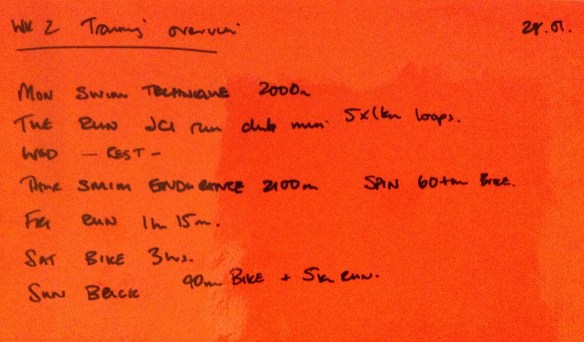 WK 2 Training overview 28.01.
MON SWIM TECHNIQUE 2000m
TUE RUN JCI run club run 5x1km loops.
WED - REST -
THUR SWIM ENDURANCE 2100m SPIN 60+m BIKE.
FRI RUN 1h 15m.
SAT BIKE 3hrs.
SUN BRICK 40m BIKE + 5km RUN.